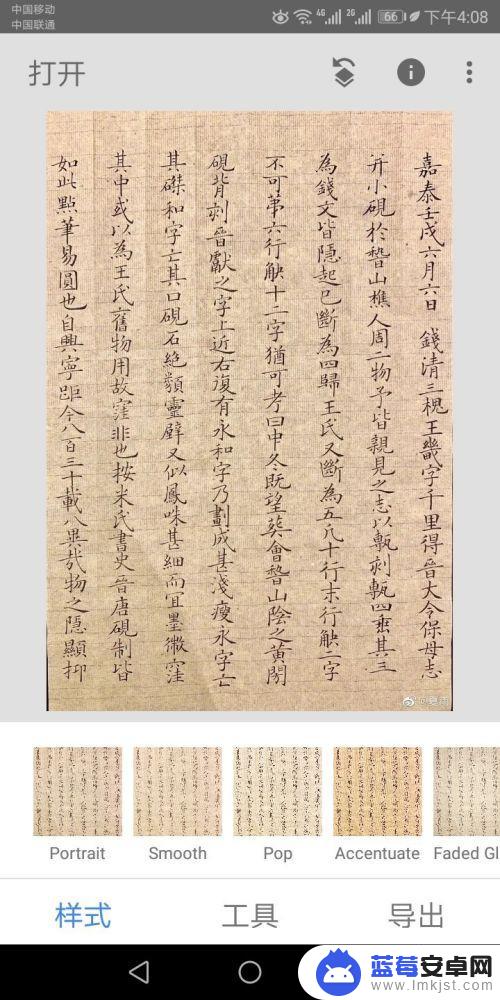 中国移动
中国联通
4G
2G
66
下午4:08
打开
嘉泰壬戌六月六日 錢清三槐王畿字千里得晉大令保母志
并小硯於嵇山樵人周二物予皆親見之志以甎刻甎四垂其三
為錢文皆隱起已斷為四歸王氏又斷為五凡十行末行觖二字
不可弟六行觖十二字猶可考曰中冬既望葬會嵇山陰之黃閍
硯背刻晉獻之字上近右復有永和字乃劃成甚淺瘦永字亡
其磔和字亡其口硯石絶類靈壁又似鳳咮甚細而宜墨微窪
其中或以為王氏舊物用故窪非也按米氏書史晉唐硯制皆
如此點筆易圓也自興寧距今八百三十載異哉物之隱顯抑
Portrait
Smooth
Pop
Accentuate
Faded Gl
样式
工具
导出
蓝莓安卓网
www.lmkjst.com